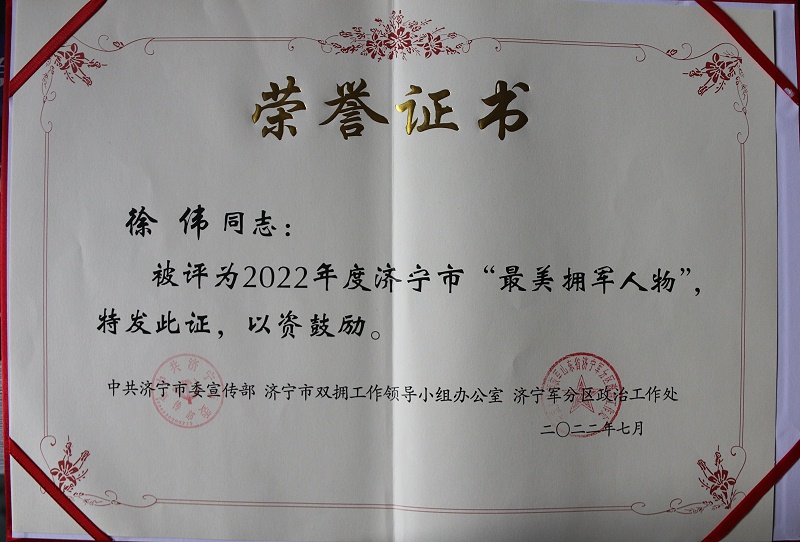 荣誉证书
徐 伟 同志：
被评为2022年度济宁市“最美拥军人物”，
特发此证，以资鼓励。
中共济宁市委宣传部 济宁市双拥工作领导小组办公室 济宁军分区政治工作处
二〇二二年七月